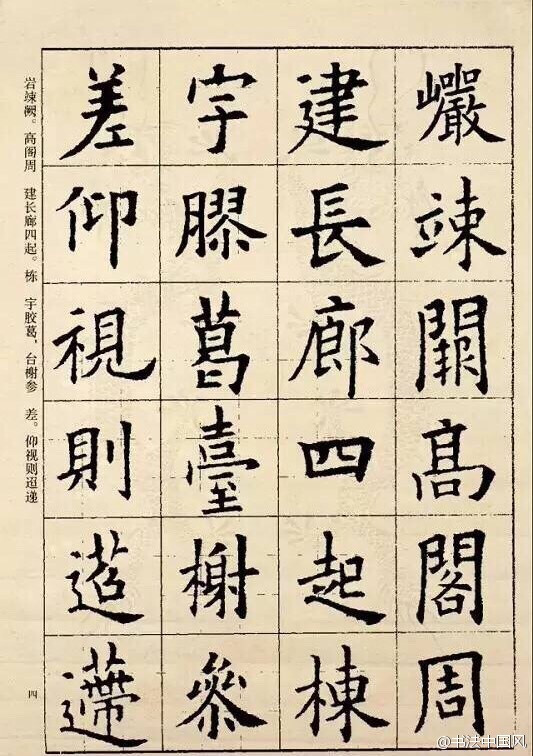 巗竦闕髙閣周
建長廊四起棟
宇膠葛臺榭參
差仰視則迢遰
岩竦阙。高阁周 建长廊四起。栋 宇胶葛，台榭参 差。仰视则迢递
四
@书法中国风